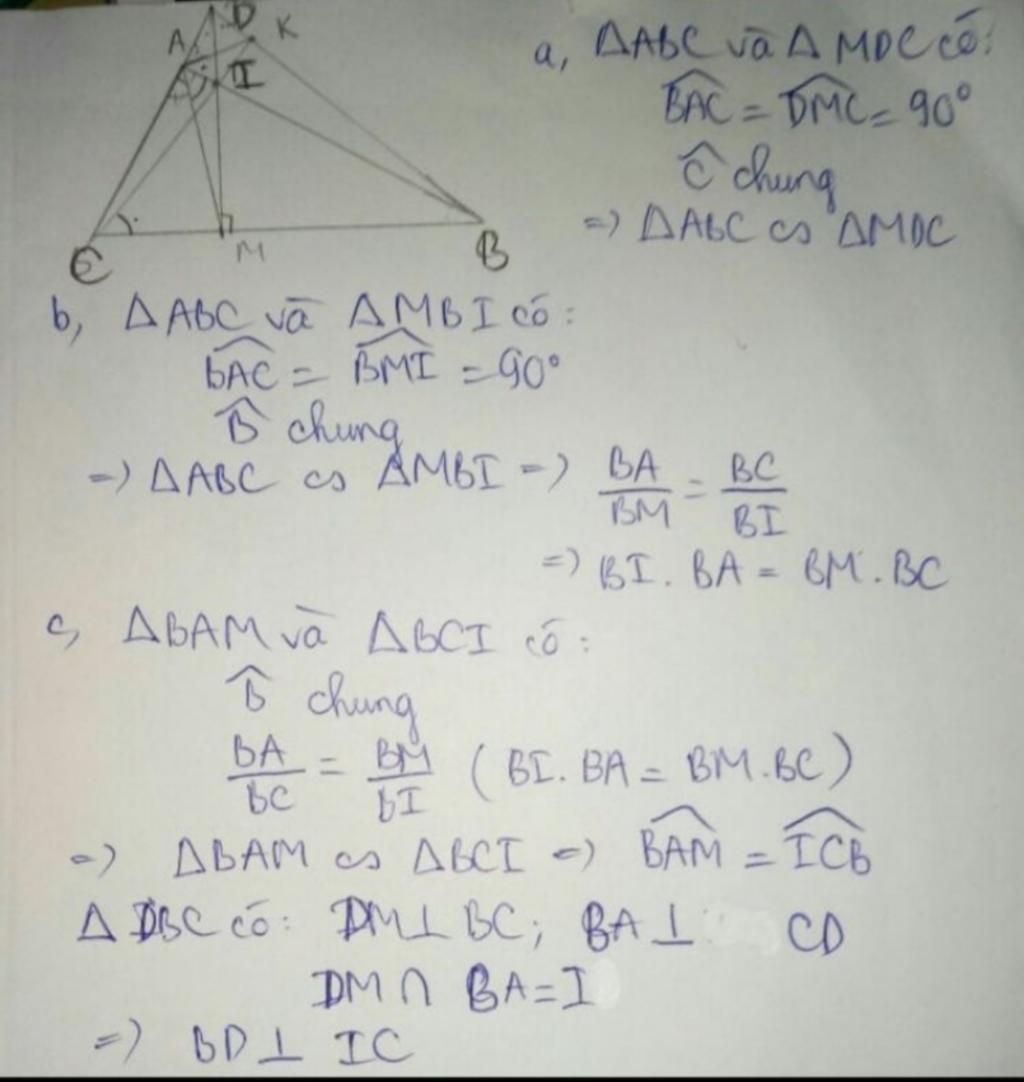 D
A
K
I
C
M
B
a, ΔABC và Δ MDC có:
BAC = DMC = 90°
Ĉ chung
=) ΔABC ∽ ΔMDC
b, ΔABC và ΔMBI có:
BAC = BMI = 90°
B̂ chung
=) ΔABC ∽ ΔMBI =) BA/BM = BC/BI
=) BI. BA = BM. BC
c, ΔBAM và ΔBCI có:
B̂ chung
BA/BC = BM/BI (BI. BA = BM. BC)
=) ΔBAM ∽ ΔBCI =) BAM = ICB
Δ DBC có: DM⊥BC; BA⊥ CD
DM∩ BA=I
=) BD⊥ IC